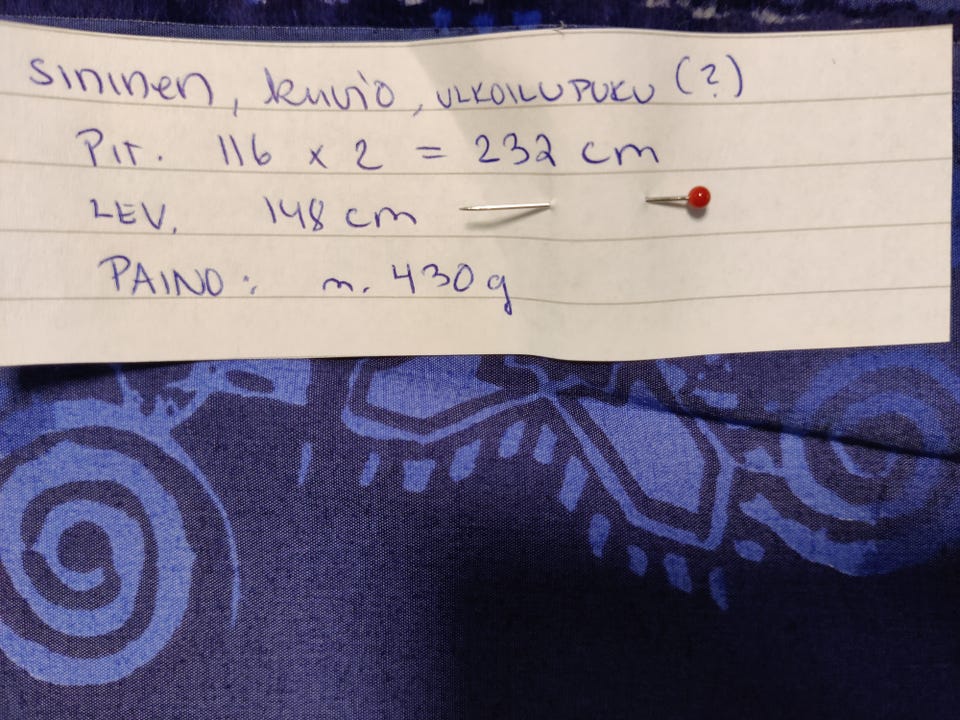 sininen, kuvio, ULKOILUPUKU (?)
PIT. 116 x 2 = 232 cm
LEV. 148 cm
PAINO: n. 430 g